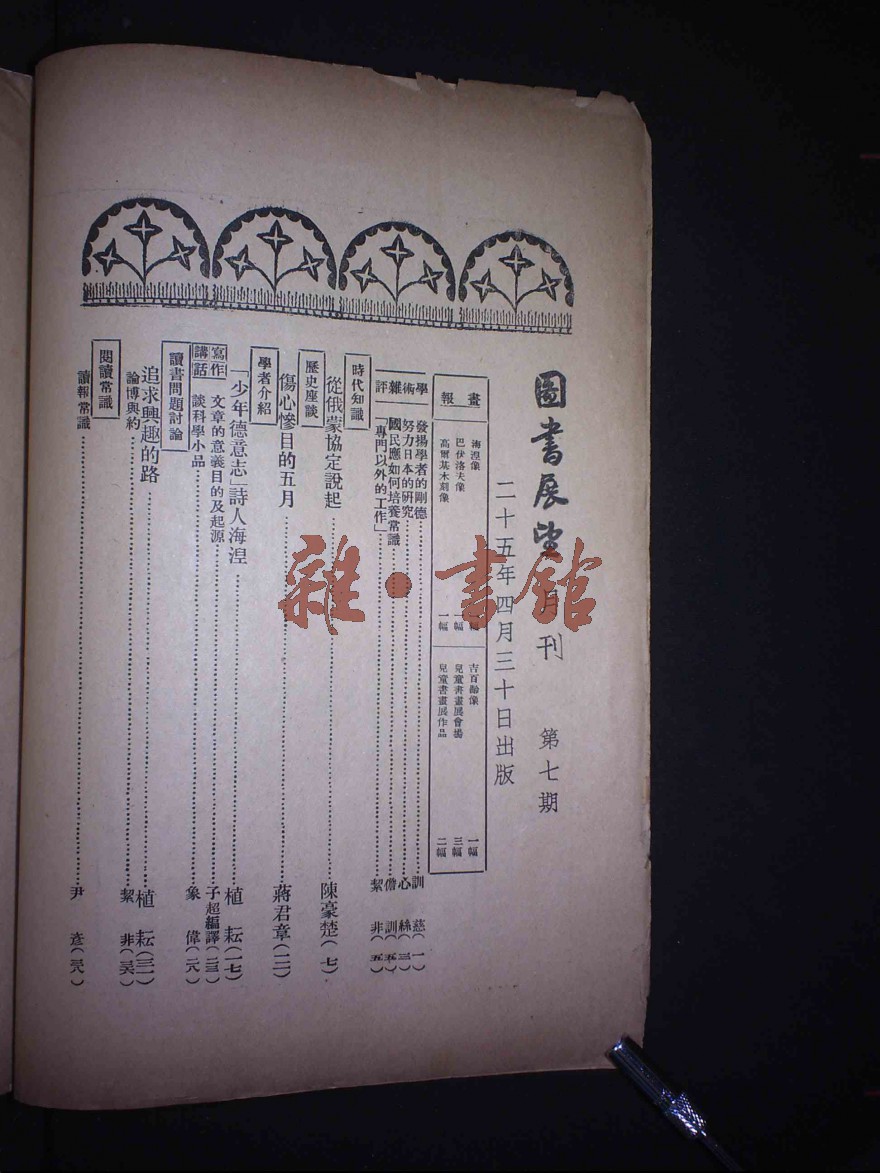 圖書展望月刊 第七期
二十五年四月三十日出版
畫報
海涅像
巴伏洛夫像 幅
高爾基木刻像 一幅
吉百齡像 一幅
兒童書畫展會場 三幅
兒童書畫展作品 二幅
學術雜評
發揚學者的剛德 訓慈(一)
努力日本的研究 心絲(三)
國民應如何培養常識 訓(五)
「專門以外的工作」 絜非(五)
時代知識
從俄蒙協定說起 陳豪楚(七)
歷史座談
傷心慘目的五月 蔣君章(一二)
學者介紹
「少年德意志」詩人海湼 植耘(一七)
寫作講話
文章的意義目的及起源 子超編譯(二三)
談科學小品 象偉(二八)
讀書問題討論
追求興趣的路 植耘(三一)
論博與約 絜非(三六)
閱讀常識
讀報常識 尹彥(三八)
雜·書館